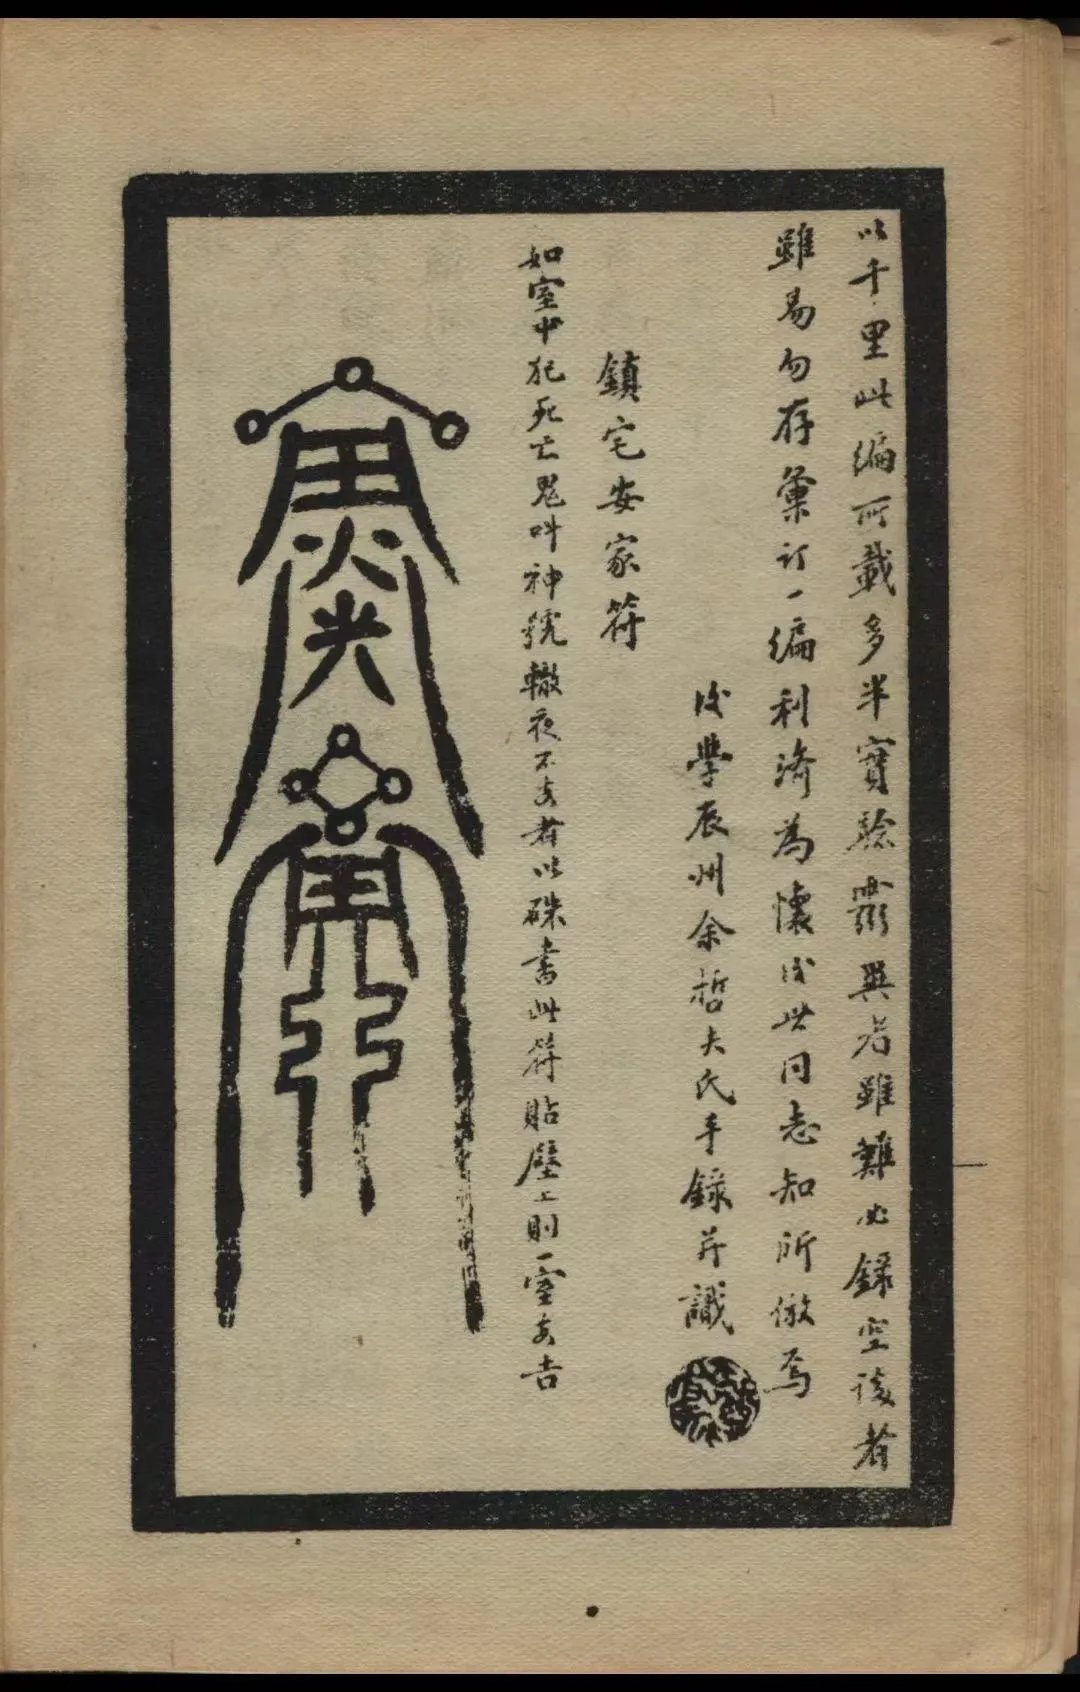 以千里此编所載多半實驗靈異者雖難必錄空談者
雖易勿存彙訂一编利濟為懷後世同志知所倣焉
後學辰州余哲夫氏手錄并識
鎮宅安家符
如室中犯死亡鬼叫神號轍夜不安者以硃書此符貼壁上則一室安吉